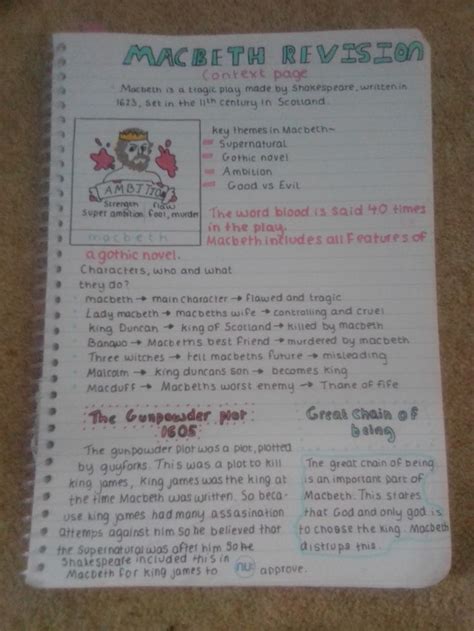 MACBETH REVISION
Context page
Macbeth is a tragic play made by Shakespeare, written in
1623, set in the 11th century in Scotland.
AMBITION
Strength flaw
Super ambition fool, murder
macbeth
key themes in Macbeth~
Supernatural
Gothic novel
Ambition
Good vs Evil
The word blood is said 40 times
in the play.
Macbeth includes all Features of
a gothic novel.
Characters, who and what
they do?
macbeth → main character → flawed and tragic
Lady macbeth → macbeths wife → controlling and cruel
king Duncan → king of Scotland → killed by macbeth
Banquo → Macbeths best friend → murdered by macbeth
Three witches → tell macbeths future → misleading
Malcolm → king duncans son → becomes king
Macduff → Macbeths worst enemy → Thane of fife
The Gunpowder plot
1605
The gunpowder plot was a plot, plotted
by guyfawks. This was a plot to kill
king james, King james was the king at
the time Macbeth was written. So beca-
use king james had many assasination
attemps against him so he believed that
the supernatural was after him so he
Shakespeare included this in
Macbeth for king james to approve.
nu:
Great chain of
being
The great chain of being
is an important part of
Macbeth. This states
that God and only god is
to choose the king. Macbeth
distrups this.